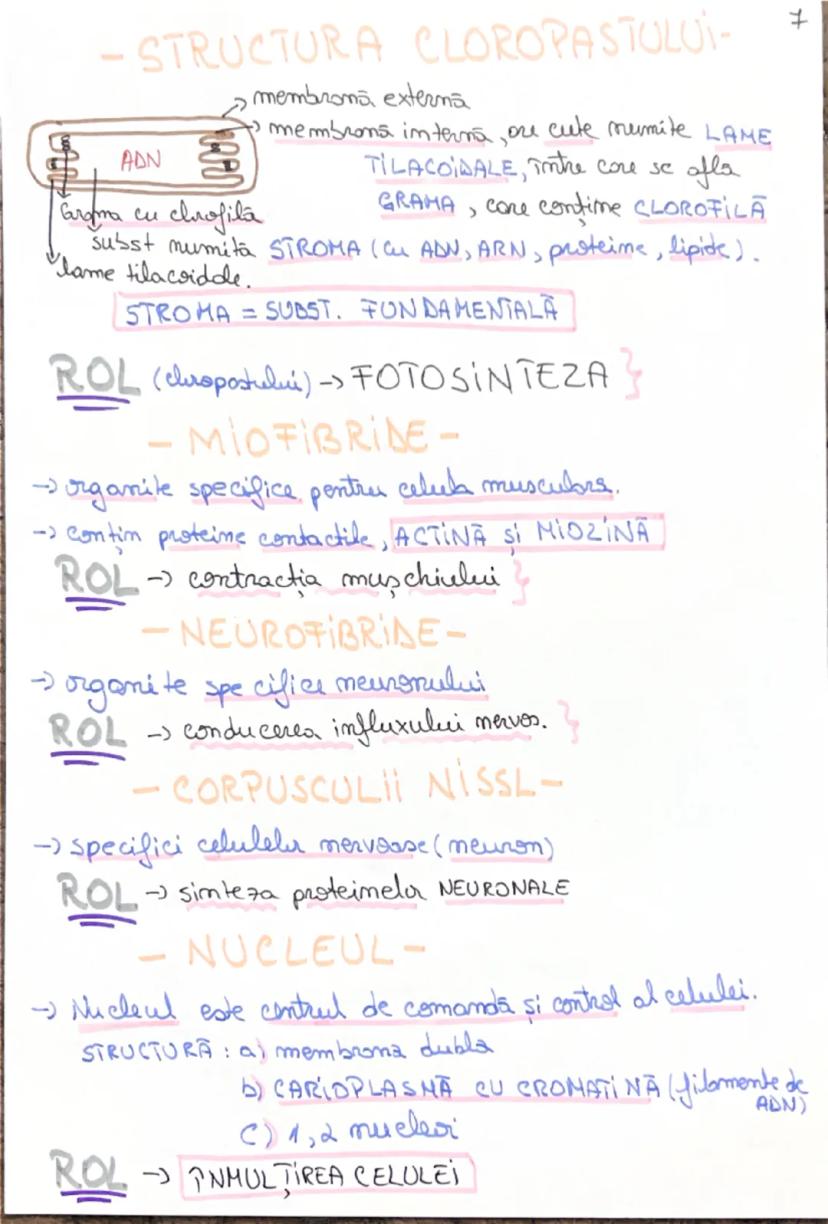 7
- STRUCTURA CLOROPASTULUi-
membrană externă
membrană internă, are cute numite LAME
ADN
TILACOiDALE, între care se afla
GRAMA, care conține CLOROFILĂ
Grama cu clorofilă
subst numită STROMA (cu ADN, ARN, proteine, lipide).
lame tilacoidale.
STROMA = SUBST. FUNDAMENTALĂ
ROL (cloropastului) → FOTOSiNTEZA }
- MiOFiBRiLE -
→ organite specifice pentru celula musculara.
→ conțin proteine contactile, ACTiNĂ și MiOZiNĂ
ROL → contracția mușchiului }
- NEUROFiBRiLE -
→ organite specifice neuronului
ROL → conducerea influxului nervos. }
- CORPUSCULii NiSSL -
→ specifici celulelor nervoase (neuron)
ROL → sinteza proteinelor NEURONALE
- NUCLEUL -
→ Nucleul este centrul de comandă și control al celulei.
STRUCTURĂ : a) membrana dubla
b) CARiOPLASMĂ CU CROMATiNĂ (filamente de
ADN)
c) 1,2 nucleoi
ROL → ÎNMULȚiREA CELULEi